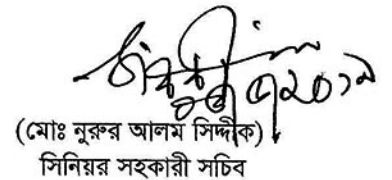 (মোঃ নুরুর আলম সিদ্দীক)
সিনিয়র সহকারী সচিব